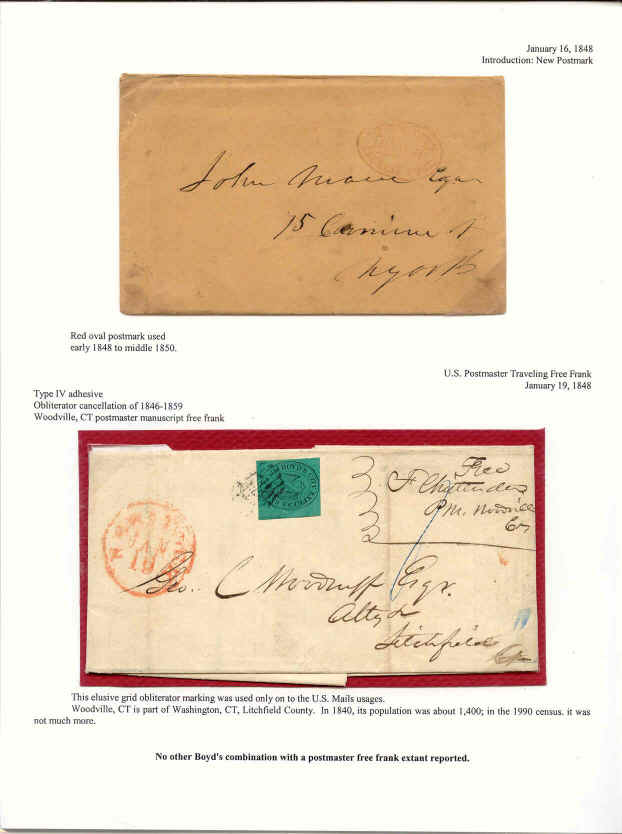 January 16, 1848
Introduction: New Postmark
John
75
Red oval postmark used
early 1848 to middle 1850.
U.S. Postmaster Traveling Free Frank
January 19, 1848
Type IV adhesive
Obliterator cancellation of 1846-1859
Woodville, CT postmaster manuscript free frank
BOYD'S CITY
Free
P.M. Woodville
JAN
19
Geo. C Woodruff Esqr.
Atty &
Litchfield
This elusive grid obliterator marking was used only on to the U.S. Mails usages.
Woodville, CT is part of Washington, CT, Litchfield County. In 1840, its population was about 1,400; in the 1990 census. it was
not much more.
No other Boyd's combination with a postmaster free frank extant reported.